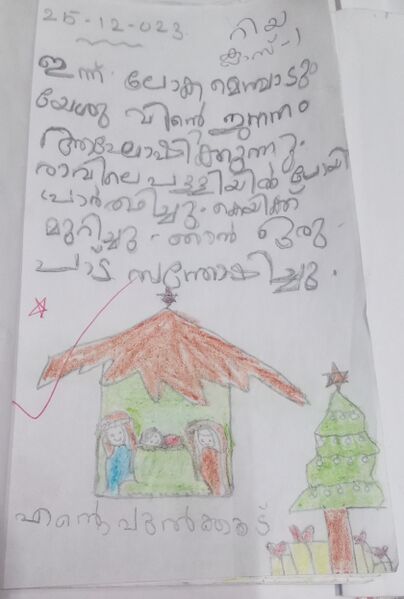 25-12-023
റിയ
ക്ലാസ്-1
ഇന്ന് ലോക മെമ്പാടും
യേശു വിന്റെ ജനനം
ആഘോഷിക്കുന്നു.
രാവിലെ പള്ളിയിൽ പോയി
പ്രാർത്ഥിച്ചു. കെയ്ക്ക്
മുറിച്ചു. ഞാൻ ഒരു
പാട് സന്തോഷിച്ചു.
എന്റെ പുൽക്കൂട്